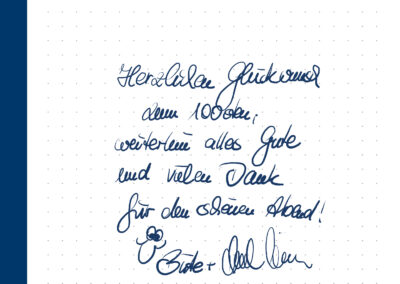 Herzlichen Glückwunsch
dem 100sten,
weiterhin alles Gute
und vielen Dank
für den schönen Abend!